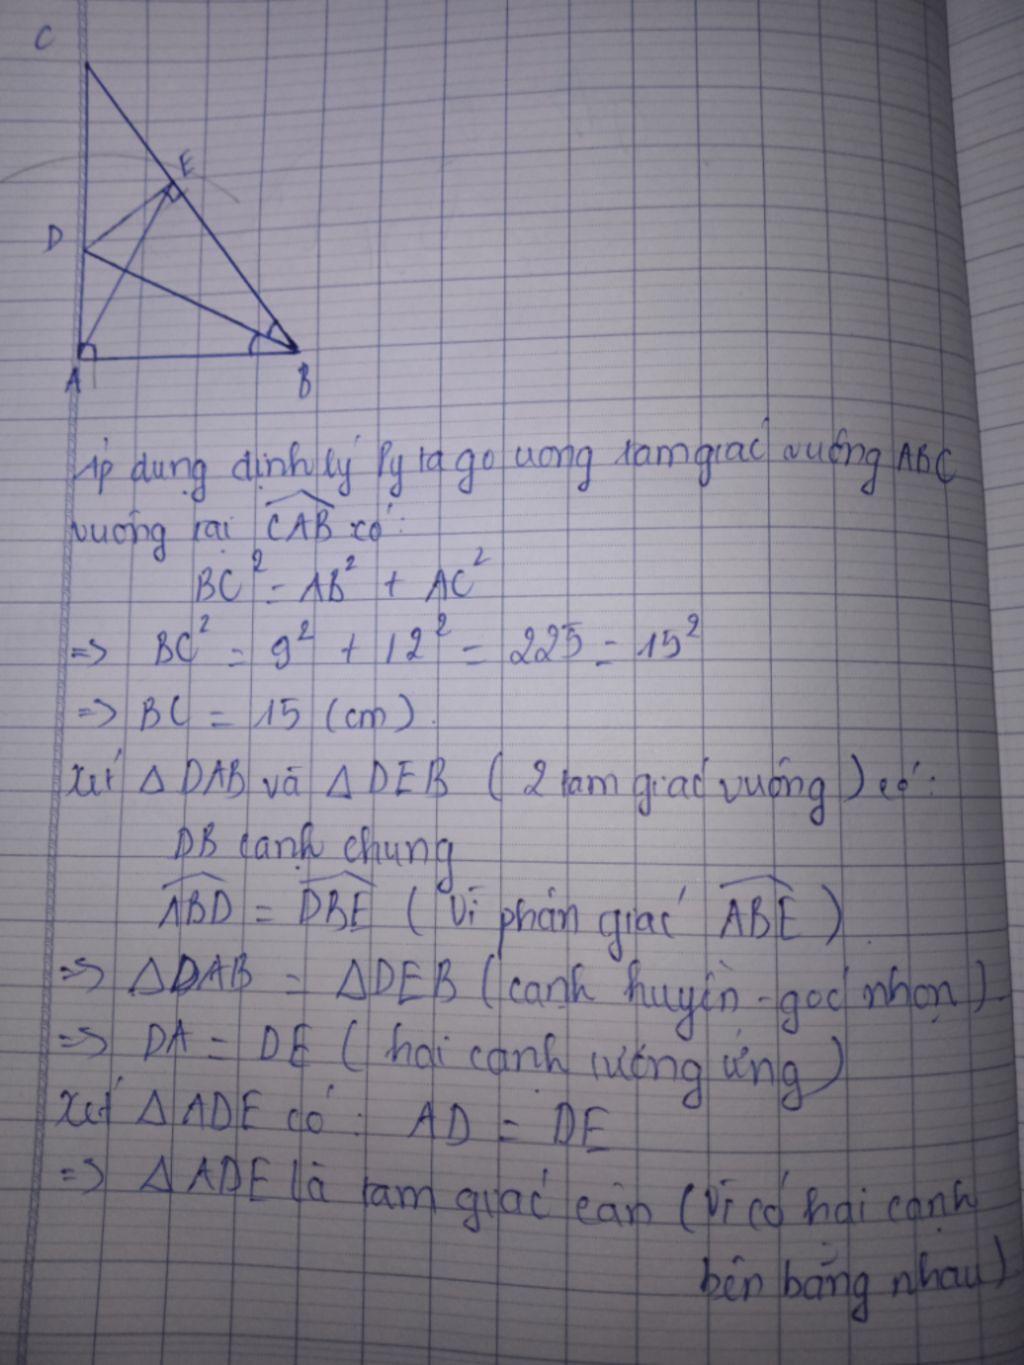 C
E
D
A
B
Áp dụng định lý Pytago trong tam giác vuông ABC
vuông tại CAB có:
BC² = AB² + AC²
=> BC² = 9² + 12² = 225 = 15²
=> BC = 15 (cm).
Xét Δ DAB và Δ DEB ( 2 tam giác vuông ) có:
DB cạnh chung
ABD = DBE ( Vì phân giác ABE ).
=> ΔDAB = ΔDEB (cạnh huyền - góc nhọn).
=> DA = DE ( hai cạnh tương ứng )
Xét Δ ADE có : AD = DE
=> Δ ADE là tam giác cân ( Vì có hai cạnh
bên bằng nhau)